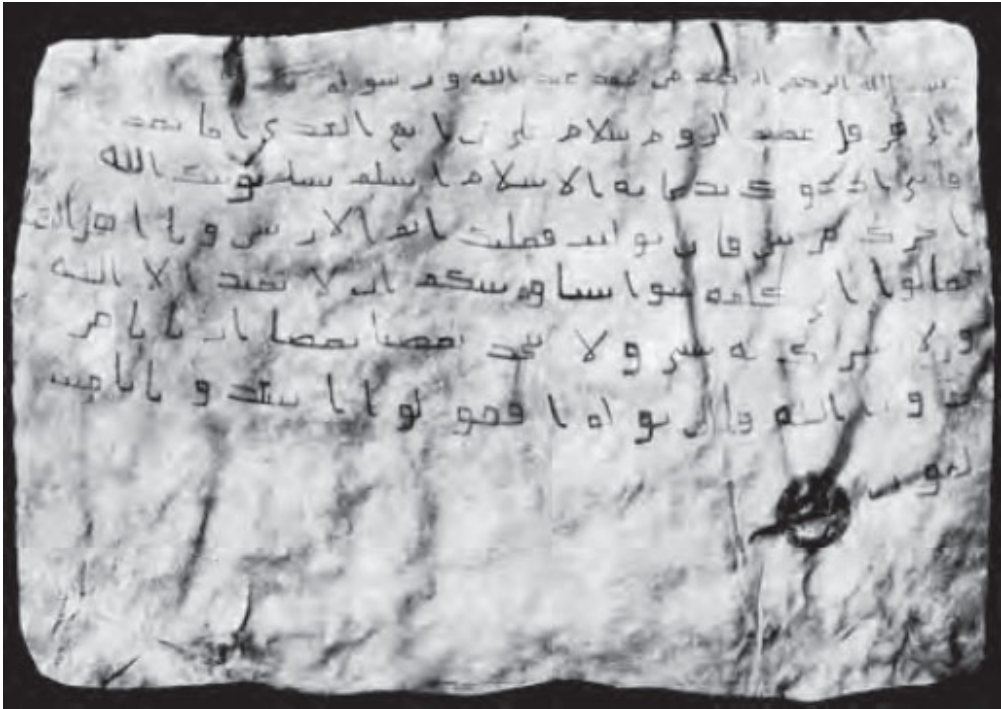 بسم الله الرحمن الرحيم من محمد عبد الله و رسوله
الى هرقل عظيم الروم سلام على من اتبع الهدى اما بعد
فاني ادعوك بدعاية الاسلام اسلم تسلم يوتك الله
اجرك مرتين فان توليت فعليك اثم الاريسين ويا اهل الكتب
تعالوا الى كلمة سوا بيننا وبينكم ان لا نعبد الا الله
ولا نشرك به شيا ولا يتخذ بعضنا بعضا اربابا من
دون الله فان تولوا فقولوا اشهدوا بانا مسـ
لمون